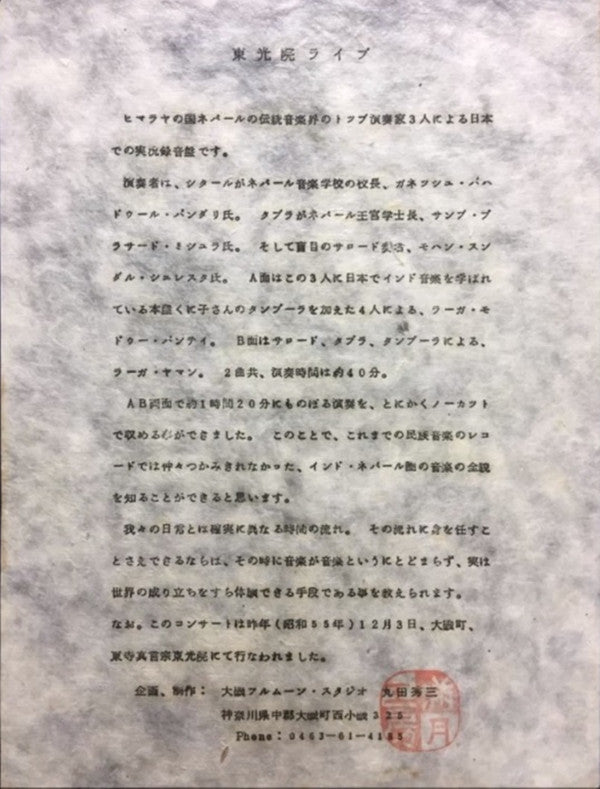 東光院ライブ
ヒマラヤの国ネパールの伝統音楽界のトップ演奏家3人による日本
での実況録音盤です。
演奏者は、シタールがネパール音楽学校の校長、ガネッシュ・バハ
ドゥール・バンダリ氏。 タブラがネパール王宮学士長、サンブ・プ
ラサード・ミシュラ氏。 そして盲目のサロード奏者、モハン・スン
ダル・シュレスタ氏。 A面はこの3人に日本でインド音楽を学ばれ
ている本間くに子さんのタンブーラを加えた4人による、ラーガ・モ
ドゥー・バンティ。 B面はサロード、タブラ、タンブーラによる、
ラーガ・ヤマン。 2曲共、演奏時間は約40分。
AB両面で約1時間20分にものぼる演奏を、とにかくノーカット
で収める事ができました。 このことで、これまでの民族音楽のレコ
ードでは仲々つかみきれなかった、インド・ネパール圏の音楽の全貌
を知ることができると思います。
我々の日常とは確実に異なる時間の流れ。 その流れに身を任すこ
とさえできるならば、その時に音楽が音楽というにとどまらず、実は
世界の成り立ちをすら体験できる手段である事を教えられます。
なお。このコンサートは昨年(昭和55年)12月3日、大磯町、
東寺真言宗東光院にて行なわれました。
企画、制作: 大磯フルムーン・スタジオ 丸田秀三
神奈川県中郡大磯町西小磯325
Phone:0463-61-4185
満月